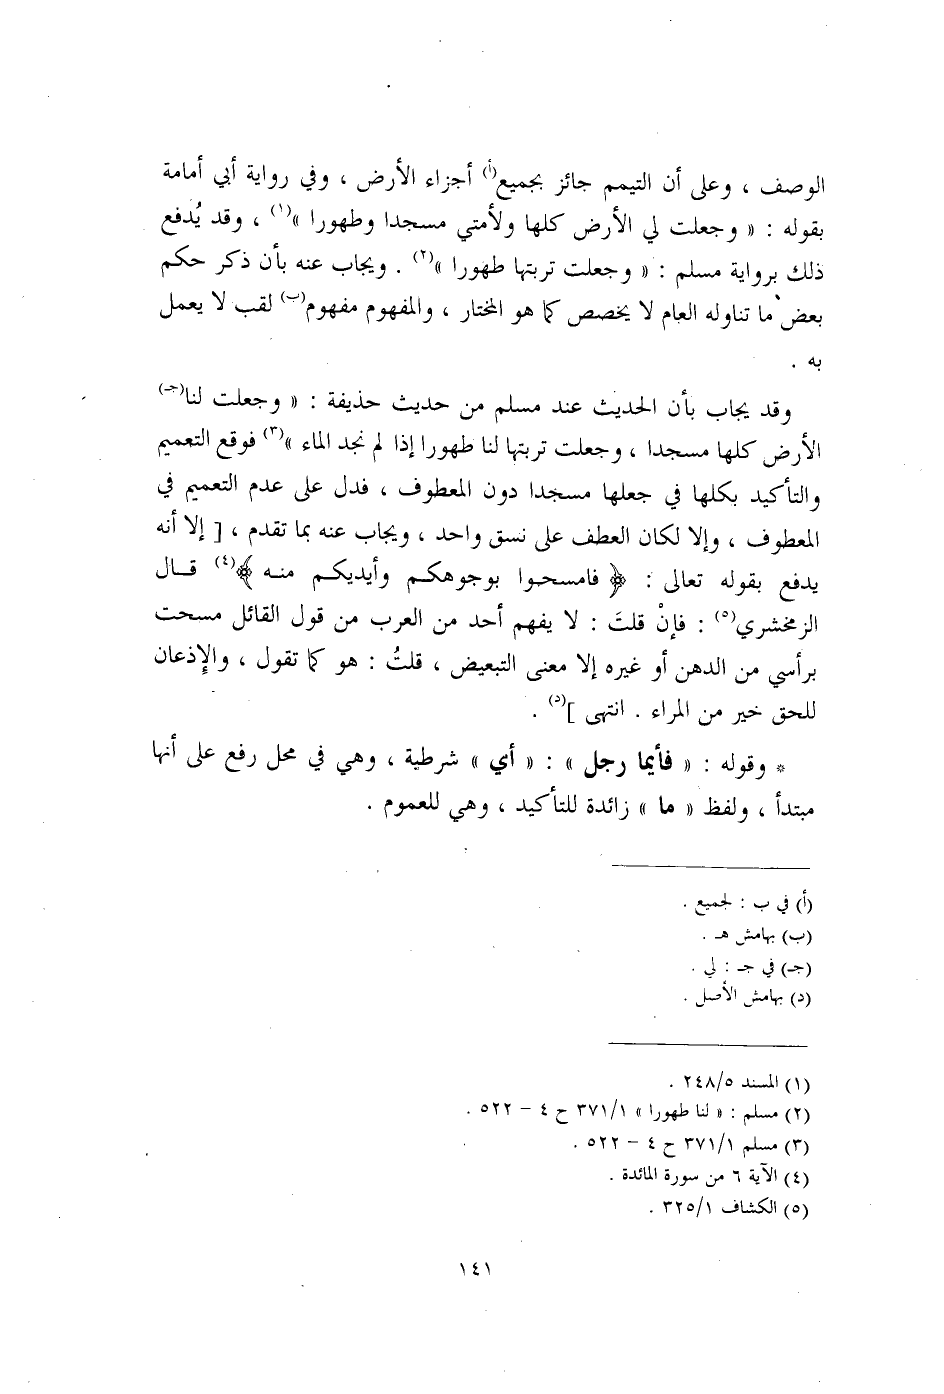 الوصف ، وعلى أن التيمم جائز بجميع(أ) أجزاء الأرض ، وفي رواية أبي أمامة
بقوله : « وجعلت لي الأرض كلها ولأمتي مسجدا وطهورا »(١) ، وقد يُدفع
ذلك برواية مسلم : « وجعلت تربتها طهورا »(٢) . ويجاب عنه بأن ذكر حكم
بعض ما تناوله العام لا يخصص كما هو المختار ، والمفهوم مفهوم(ب) لقب لا يعمل
به .
وقد يجاب بأن الحديث عند مسلم من حديث حذيفة : « وجعلت لنا(جـ)
الأرض كلها مسجدا ، وجعلت تربتها لنا طهورا إذا لم نجد الماء »(٣) فوقع التعميم
والتأكيد بكلها في جعلها مسجدا دون المعطوف ، فدل على عدم التعميم في
المعطوف ، وإلا لكان العطف على نسق واحد ، ويجاب عنه بما تقدم ، [ إلا أنه
يدفع بقوله تعالى : ﴿ فامسحوا بوجوهكم وأيديكم منه ﴾(٤) قال
الزمخشري(٥) : فإنْ قلتَ : لا يفهم أحد من العرب من قول القائل مسحت
برأسي من الدهن أو غيره إلا معنى التبعيض ، قلتُ : هو كما تقول ، والإذعان
للحق خير من المراء . انتهى ](د) .
* وقوله : « فأيما رجل » : « أي » شرطية ، وهي في محل رفع على أنها
مبتدأ ، ولفظ « ما » زائدة للتأكيد ، وهي للعموم .
(أ) في ب : لجميع .
(ب) بهامش هـ .
(جـ) في جـ : لي .
(د) بهامش الأصل .
(١) المسند ٢٤٨/٥ .
(٢) مسلم : « لنا طهورا » ٣٧١/١ ح ٤ – ٥٢٢ .
(٣) مسلم ٣٧١/١ ح ٤ – ٥٢٢ .
(٤) الآية ٦ من سورة المائدة .
(٥) الكشاف ٣٢٥/١ .
١٤١